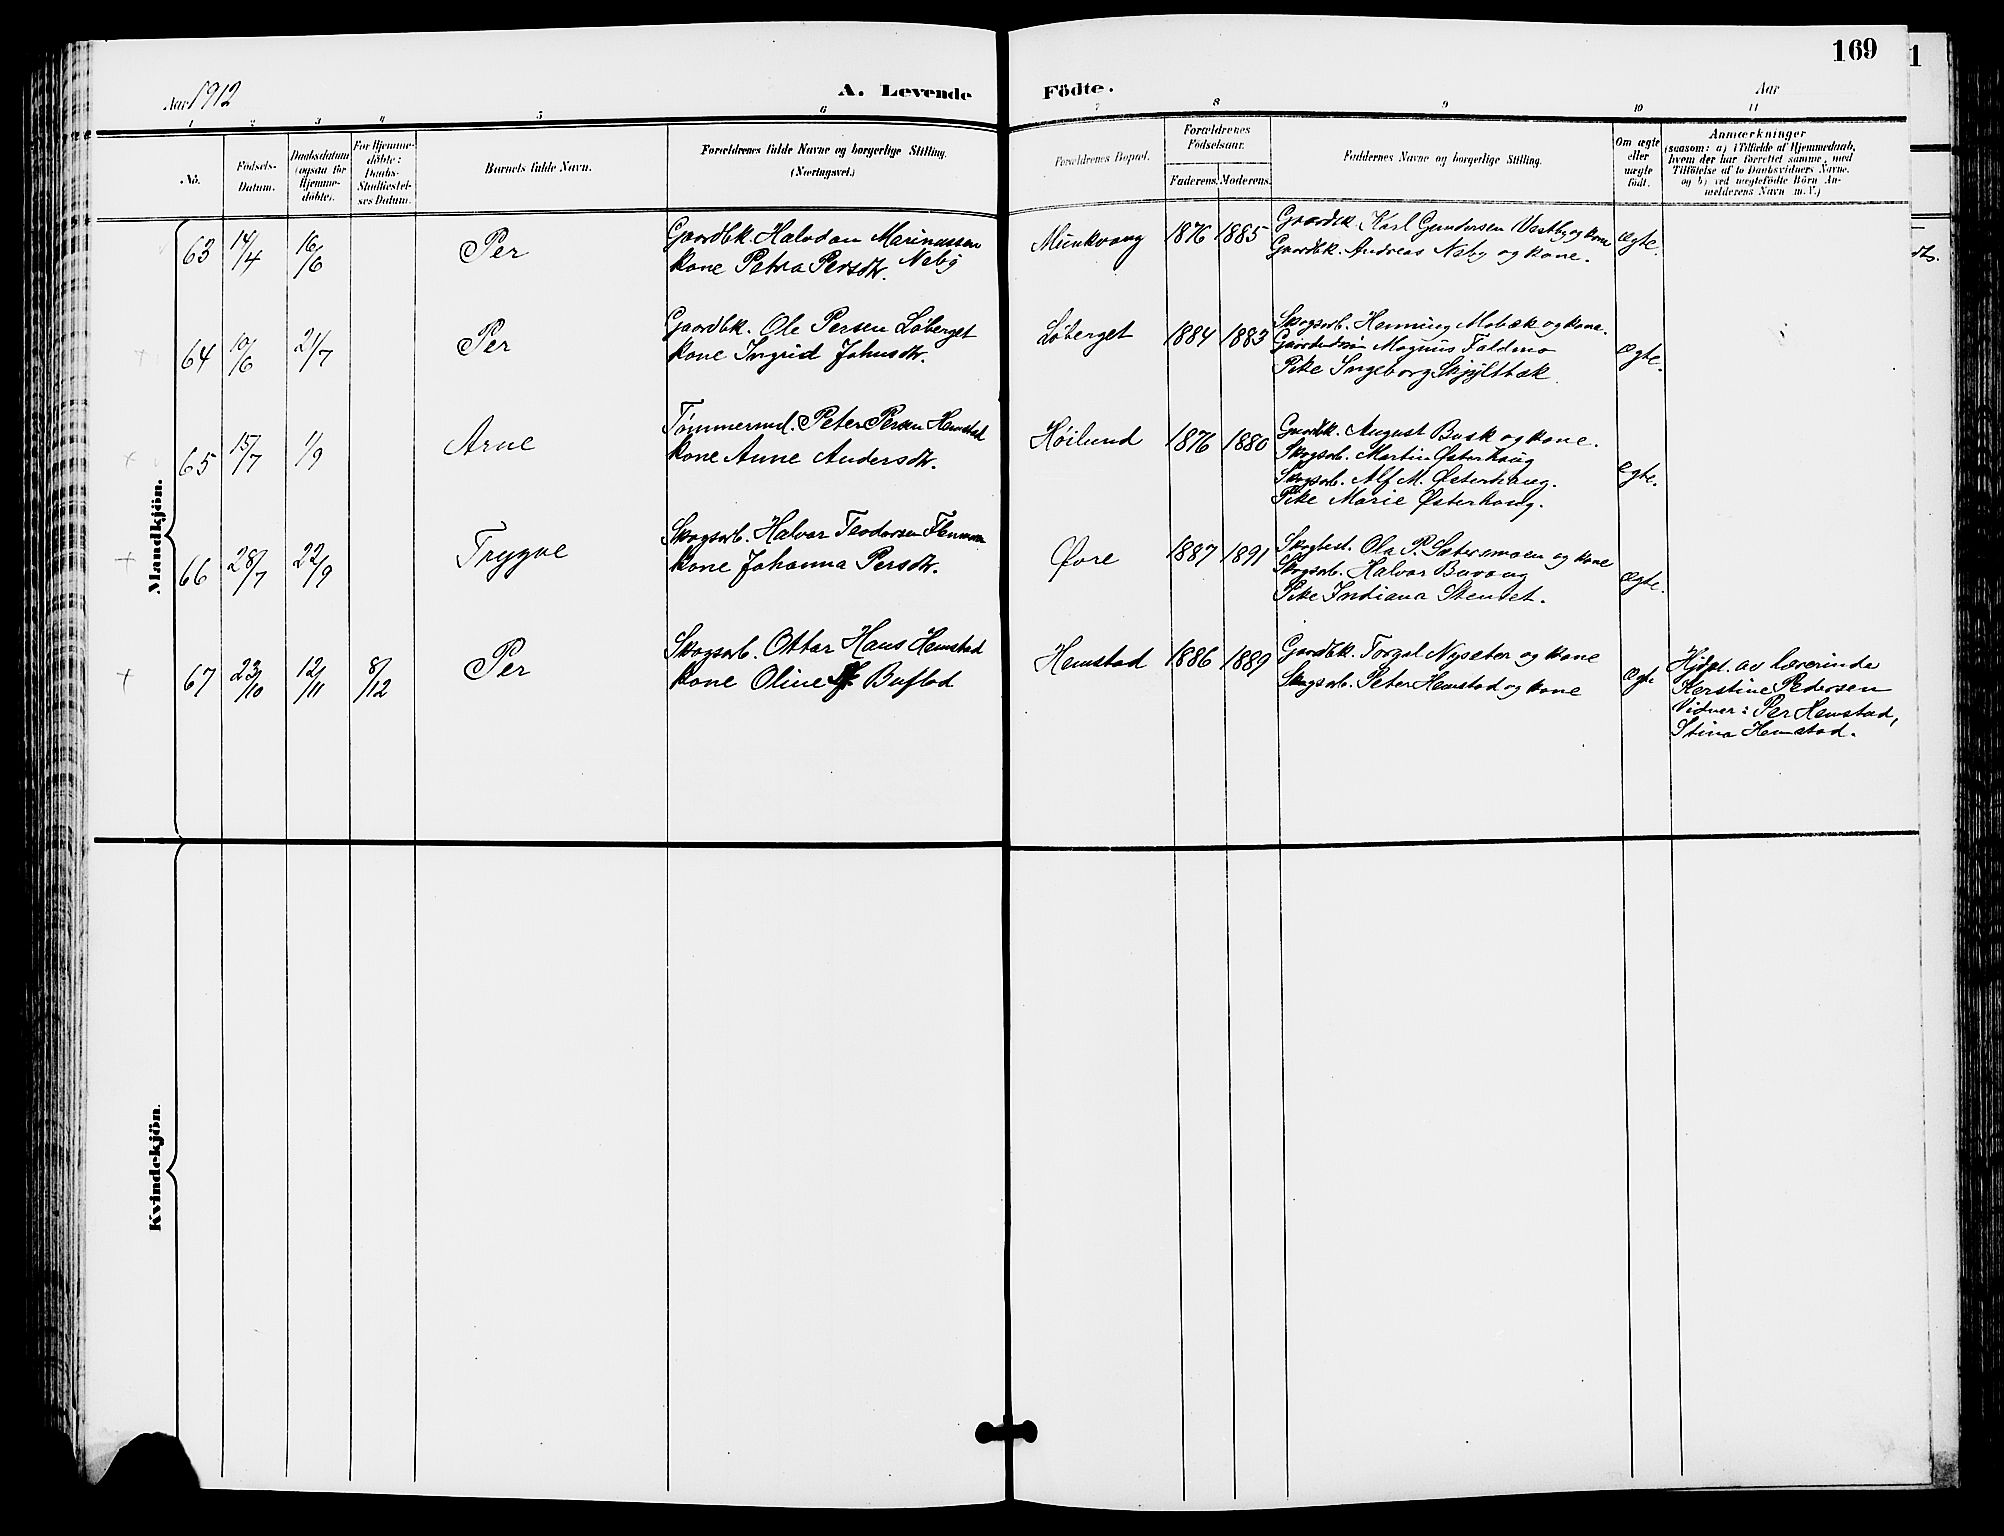 169
1
Aar 1912
A. Levende Födte.
Aar
1 2 3 4 5 6 7 8 9 10 11
No.
Födsels-
Datum.
Daabsdatum
(ogsaa for
Hjemme-
döbte).
For Hjemme-
döbte:
Daabs-
Stadfæstel-
ses Datum.
Barnets fulde Navn.
Forældrenes fulde Navne og borgerlige Stilling.
(Næringsvei.)
Forældrenes Bopæl.
Forældrenes
Födselsaar.
Faderens. Moderens.
Faddernes Navne og borgerlige Stilling.
Om ægte
eller
uægte
født.
Anmærkninger
(saasom: a) i Tilfælde af Hjemmedaab,
hvem der har forrettet samme, med
Tilföielse af to Daabsvidners Navne.
og b) ved uægtefödte Börn An-
melderens Navn m. V.)
Mandkjön.
63 14/4 16/6 Per
Gaardbk. Halvdan Marinussen
Kone Petra Persdtr. Neby
Munkvang 1876 1885
Gaardbk. Karl Gundersen Vestby og kone
Gaardbk. Andreas Neby og kone.
Ægte.
64 10/6 21/7 Per
Gaardbk. Ole Persen Løberget
Kone Ingrid Johnsdtr.
Løberget 1884 1883
Skogsarb. Henning Mobæk og kone.
Magnus Faldmo
Pike Ingeborg Skjyltbæk
Ægte.
65 15/7 1/9 Arne
Tømmermd. Peter Persen Hemstad
Kone Anne Andersdtr.
Høilund 1876 1880
Gaardbk. August Bask og kone.
Skogsarb. Martin Østerhaug
Skogsarb. Alf M. Østerhaug.
Pike Marie Østerhaug.
Ægte.
66 28/7 22/9 Trygve
Skogsarb. Halvor Teodorsen
Kone Johanna Persdtr.
Øvre 1887 1891
Skogbest. Ola P. Sætermoen og kone
Skogsarb. Halvor
Pike Indiana Stenset.
Ægte.
67 23/10 12/11 8/12 Per
Skogsarb. Ottar Hans Hemstad
Kone Oline Buflod
Hemstad 1886 1889
Gaardbk. Torgal Nysæter og kone
Skogsarb. Peter Hemstad og kone
Ægte
Hjdpt. av lærerinde
Kerstine Pedersen
Vidner: Per Hemstad,
Stina Hemstad.
Kvindekjön.